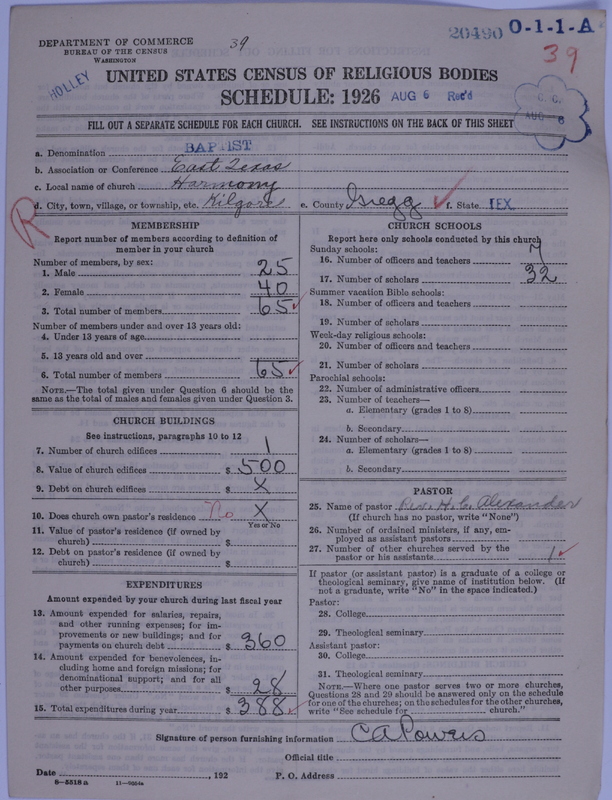 DEPARTMENT OF COMMERCE
BUREAU OF THE CENSUS
WASHINGTON
39
20490 O-1-1-A
39
HOLLEY
UNITED STATES CENSUS OF RELIGIOUS BODIES
SCHEDULE: 1926 AUG 6 Rec'd
C. C.
AUG 6
FILL OUT A SEPARATE SCHEDULE FOR EACH CHURCH. SEE INSTRUCTIONS ON THE BACK OF THIS SHEET
a. Denomination BAPTIST
b. Association or Conference East Texas
c. Local name of church Harmony
d. City, town, village, or township, etc. Kilgore e. County Gregg f. State TEX.
R
MEMBERSHIP
Report number of members according to definition of
member in your church
Number of members, by sex:
1. Male 25
2. Female 40
3. Total number of members 65
Number of members under and over 13 years old:
4. Under 13 years of age
5. 13 years old and over
6. Total number of members 65
NOTE.—The total given under Question 6 should be the
same as the total of males and females given under Question 3.
CHURCH BUILDINGS
See instructions, paragraphs 10 to 12
7. Number of church edifices 1
8. Value of church edifices $ 500
9. Debt on church edifices $ X
10. Does church own pastor's residence No X
Yes or No
11. Value of pastor's residence (if owned by
church) $
12. Debt on pastor's residence (if owned by
church) $
EXPENDITURES
Amount expended by your church during last fiscal year
13. Amount expended for salaries, repairs,
and other running expenses; for im-
provements or new buildings; and for
payments on church debt $ 360
14. Amount expended for benevolences, in-
cluding home and foreign missions; for
denominational support; and for all
other purposes $ 28
15. Total expenditures during year $ 388
CHURCH SCHOOLS
Report here only schools conducted by this church
Sunday schools:
16. Number of officers and teachers 7
17. Number of scholars 32
Summer vacation Bible schools:
18. Number of officers and teachers
19. Number of scholars
Week-day religious schools:
20. Number of officers and teachers
21. Number of scholars
Parochial schools:
22. Number of administrative officers
23. Number of teachers—
a. Elementary (grades 1 to 8)
b. Secondary
24. Number of scholars—
a. Elementary (grades 1 to 8)
b. Secondary
PASTOR
25. Name of pastor Rev. H. C. Alexander
(If church has no pastor, write "None")
26. Number of ordained ministers, if any, em-
ployed as assistant pastors
27. Number of other churches served by the
pastor or his assistants 1
If pastor (or assistant pastor) is a graduate of a college or
theological seminary, give name of institution below. (If
not a graduate, write "No" in the space indicated.)
Pastor:
28. College
29. Theological seminary
Assistant pastor:
30. College
31. Theological seminary
NOTE.—Where one pastor serves two or more churches,
Questions 28 and 29 should be answered only on the schedule
for one of the churches; on the schedules for the other churches,
write "See schedule for church."
Signature of person furnishing information C A Powers
Official title
Date , 192 P. O. Address
8-5518 a